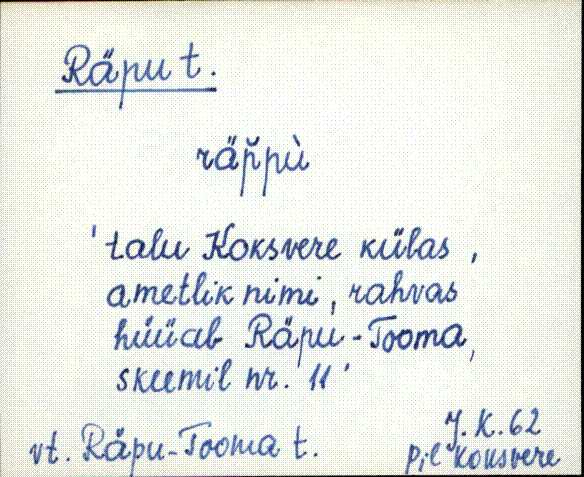 Räpu t.
räp̆pù
'talu Koksvere külas,
ametlik nimi, rahvas
hüüab Räpu-Tooma,
skeemil nr. 11'
vt. Räpu-Tooma t.
J. K. 62
Pil Koksvere